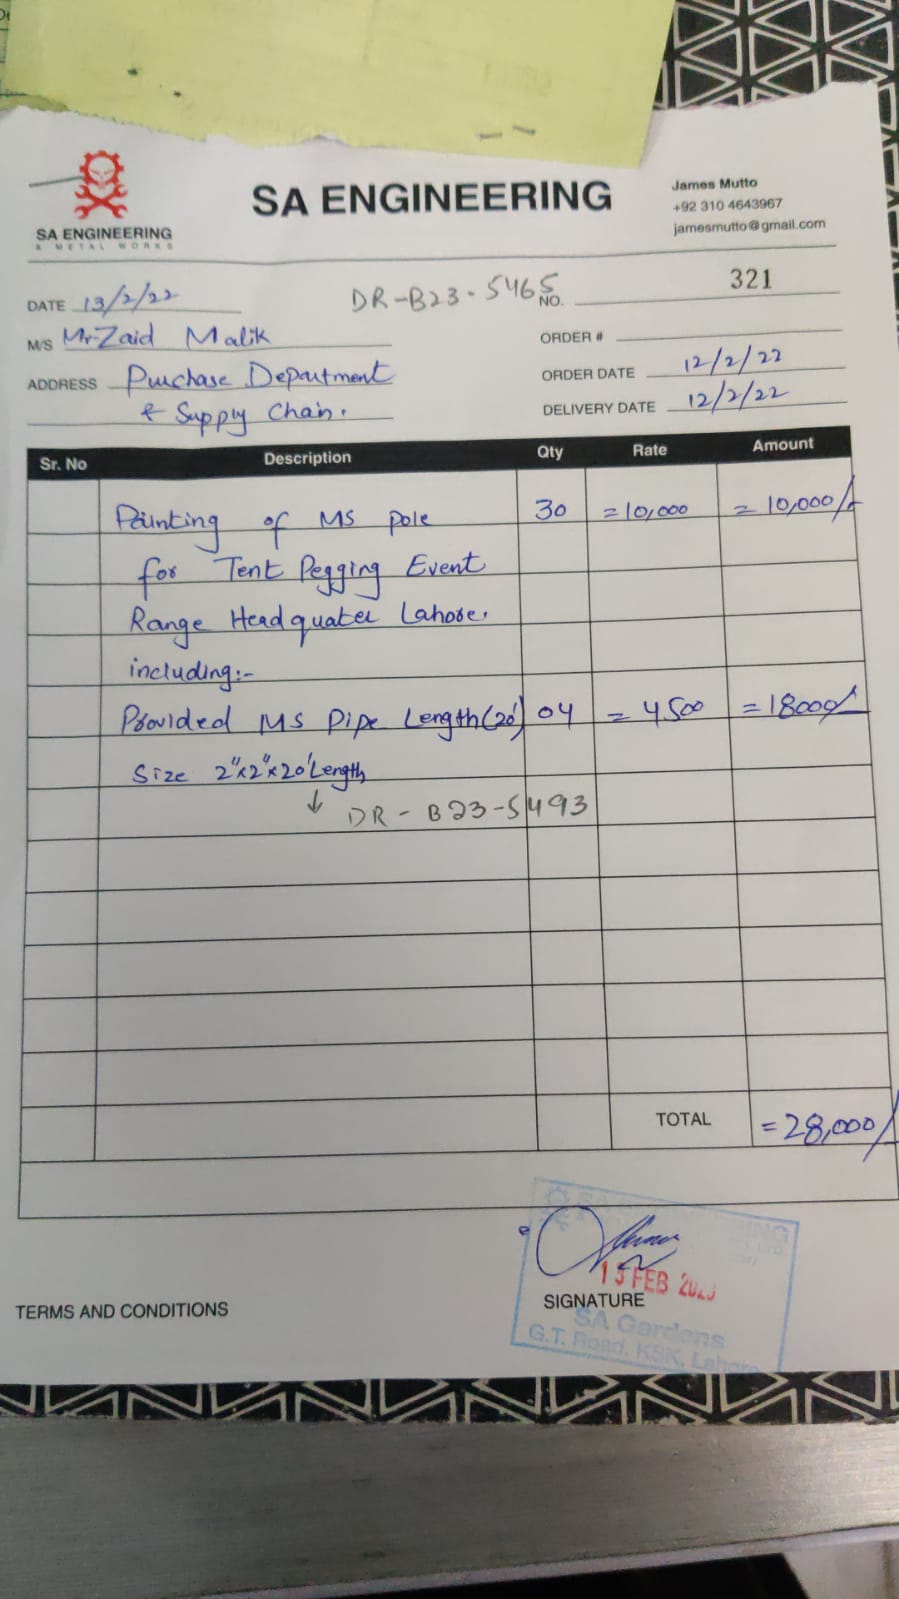 SA ENGINEERING
& METAL WORKS
SA ENGINEERING
James Mutto
+92 310 4643967
jamesmutto@gmail.com
DATE 13/2/22
DR-B23-5465
NO. 321
M/S Mr Zaid Malik
ORDER #
ADDRESS Purchase Department
& Supply Chain.
ORDER DATE 12/2/22
DELIVERY DATE 12/2/22
Sr. No Description Qty Rate Amount
Painting of MS pole 30 =10,000 =10,000/-
for Tent Pegging Event
Range Headquater Lahore.
including:-
Provided MS Pipe Length(20') 04 = 4500 =18000/-
Size 2"x2"x20'Length
↓ DR-B23-5493
TOTAL =28,000/-
13 FEB 2023
SIGNATURE
SA Gardens
G.T. Road, KSK, Lahore
TERMS AND CONDITIONS